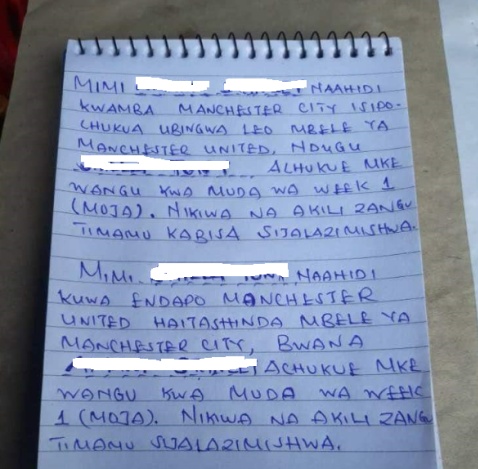 MIMI NAAHIDI
KWAMBA MANCHESTER CITY ISIPO-
CHUKUA UBINGWA LEO MBELE YA
MANCHESTER UNITED, NDUGU
ACHUKUE MKE
WANGU KWA MUDA WA WEEK 1
(MOJA). NIKIWA NA AKILI ZANGU
TIMAMU KABISA SIJALAZIMISHWA.
MIMI NAAHIDI
KUWA ENDAPO MANCHESTER
UNITED HAITASHINDA MBELE YA
MANCHESTER CITY, BWANA
ACHUKUE MKE
WANGU KWA MUDA WA WEEK
1 (MOJA). NIKIWA NA AKILI ZANGU
TIMAMU SIJALAZIMISHWA.